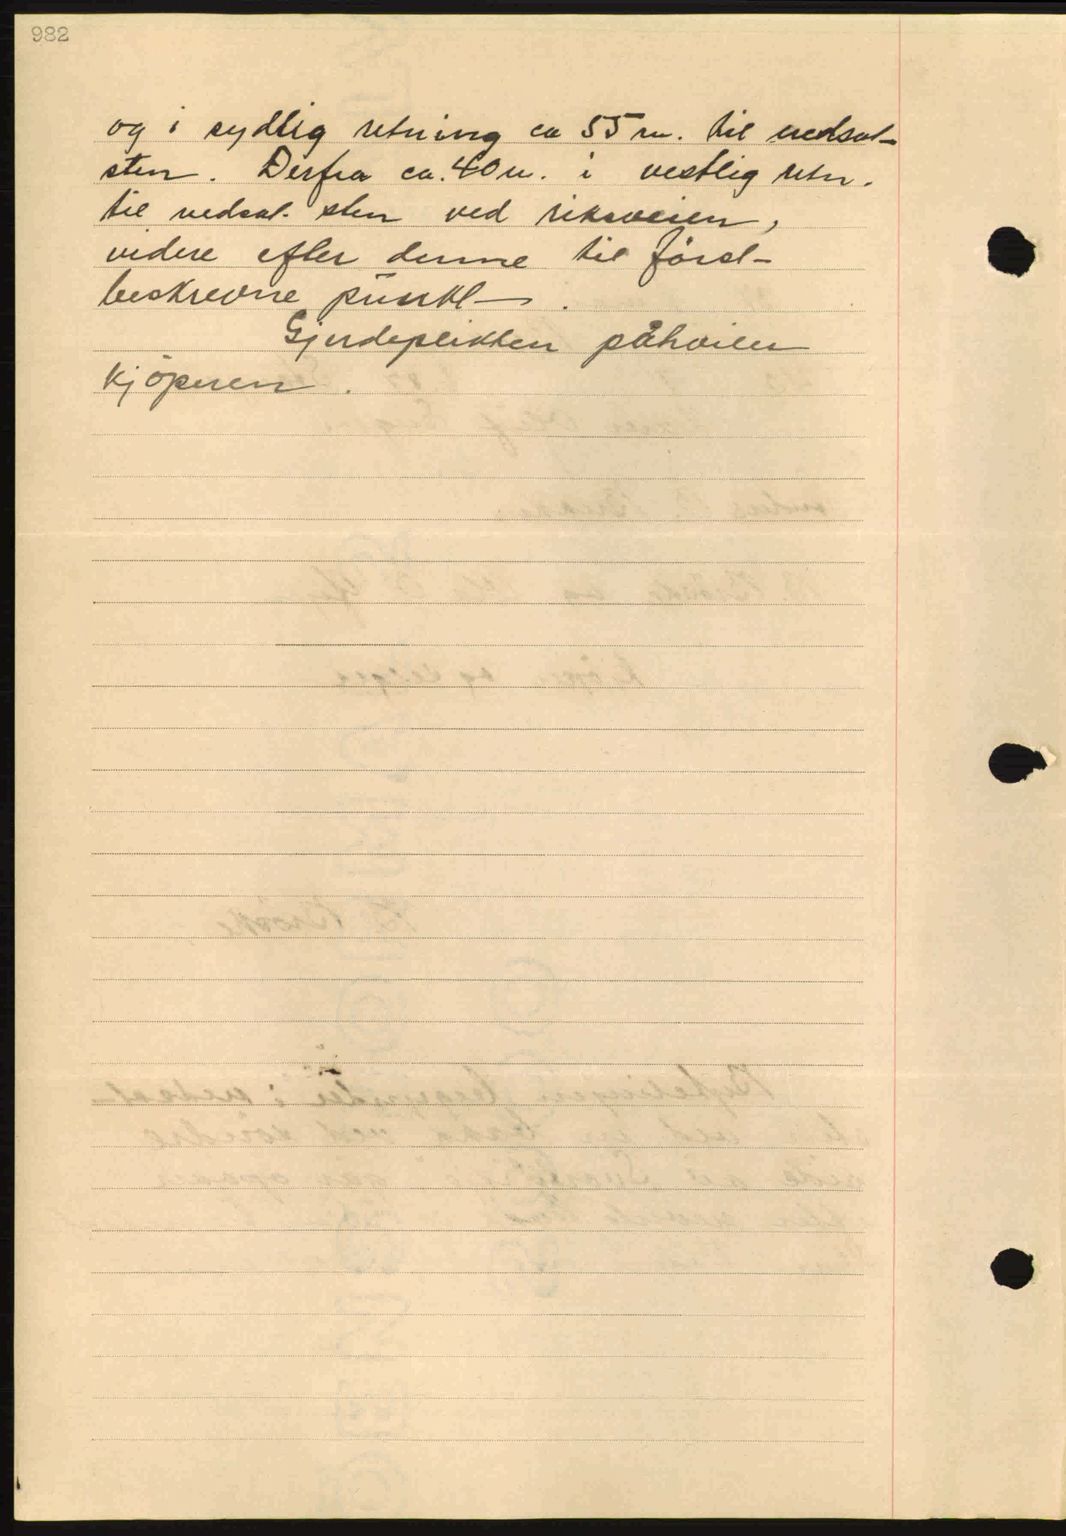 982
og i sydlig retning ca 55 m. til nedsat-
sten. Derfra ca. 40 m. i vestlig retn.
til nedsat. sten ved riksveien,
videre efter denne til först-
beskrevne punkt.
Gjerdeplikten påhviler
kjöperen.